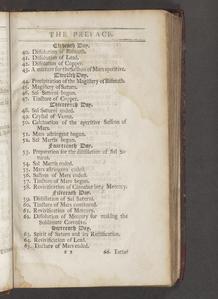 THE PREFACE.
Eleventh Day.
40. Dissolution of Bismuth.
41. Dissolution of Lead.
42. Dissolution of Copper.
43. A mixture for the Saffron of Mars aperitive.
Twelfth Day.
44. Precipitation of the Magistery of Bismuth.
45. Magistery of Saturn.
46. Sal Saturni begun.
47. Tincture of Copper.
Thirteenth Day.
48. Sal Saturni ended.
49. Crystal of Venus.
50. Calcination of the aperitive Saffron of
Mars.
51. Mars astringent begun.
52. Sal Martis begun.
Fourteenth Day.
53. Preparation for the distillation of Sal Sa-
turni.
54. Sal Martis ended.
55. Mars astringent ended.
56. Saffron of Mars ended.
57. Tincture of Mars begun.
58. Revivification of Cinnabar into Mercury.
Fifteenth Day.
59. Distillation of Sal Saturni.
60. Tincture of Mars continued.
61. Revivification of Mercury.
62. Dissolution of Mercury for making the
Sublimate Corrosive.
Sixteenth Day.
63. Spirit of Saturn and its Rectification.
64. Revivification of Lead.
65. Tincture of Mars ended.
66. Tartar